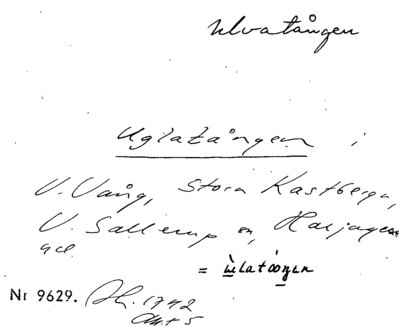 Ulvatången
Uglatången i
V. Vång, Stora Kastberga,
V. Sallerup sn, Harjagers
hd
= ùlatòngen
Nr 9629. Sk. 1742
Akt 5